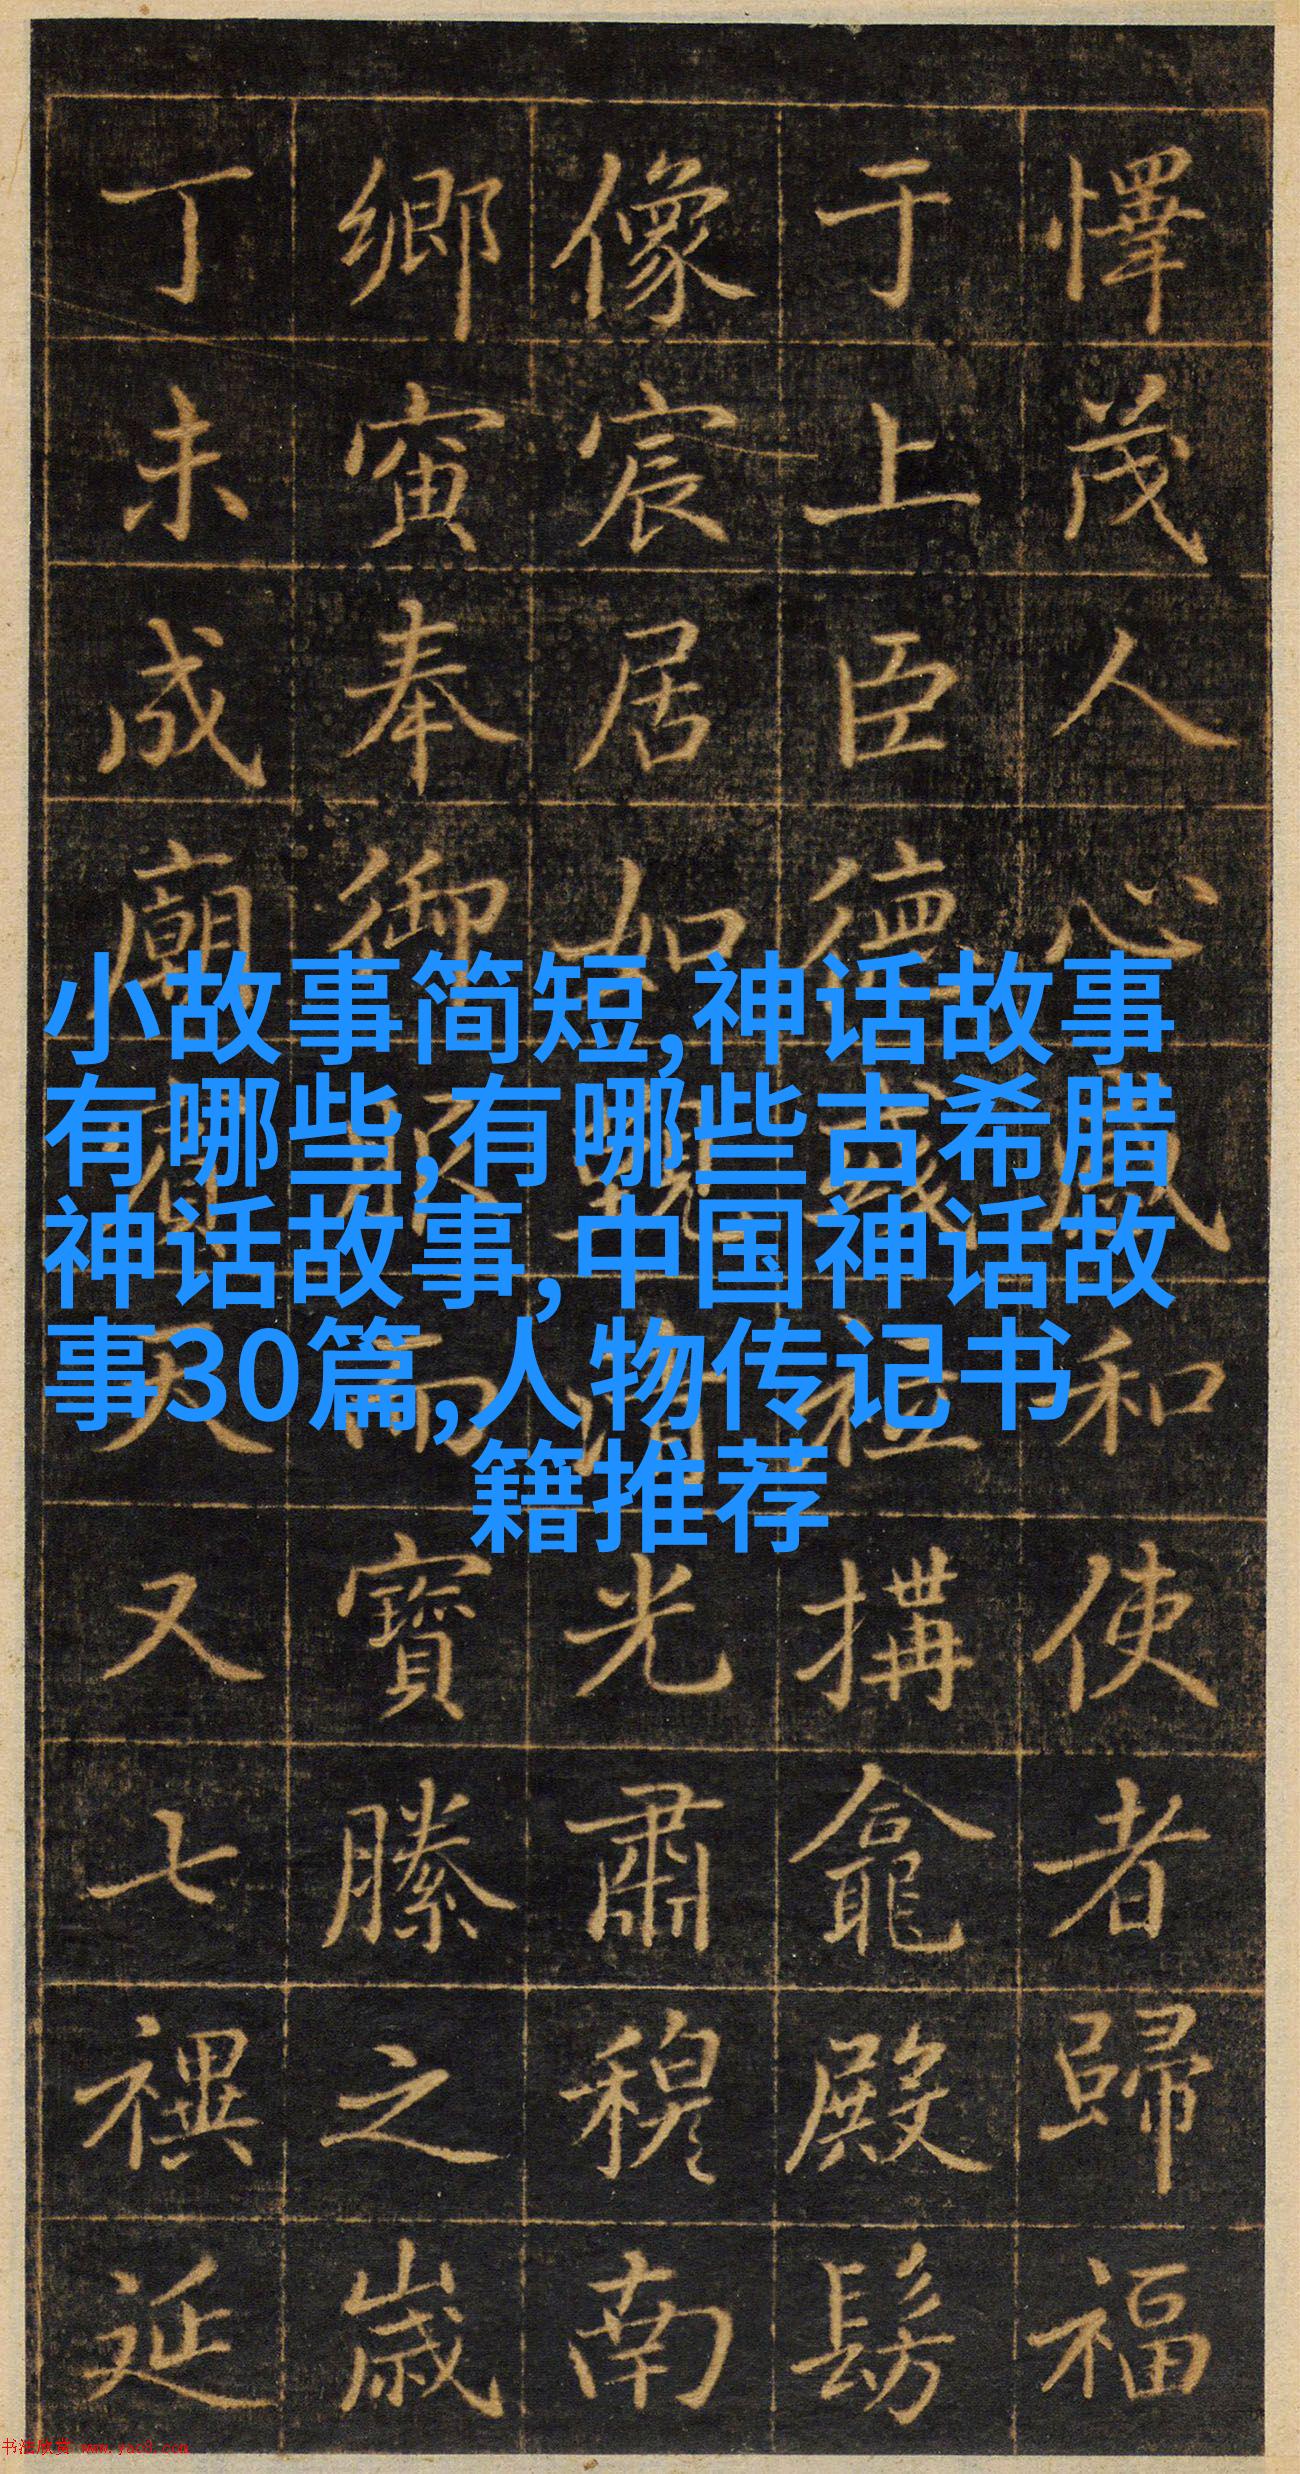 懌茂人心感和使者歸福
于上臣德彧祉搆龕殿髣
像宸居如覲清光肅穆南
鄉寅奉御服而寶縢之歲
丁未成廟
天又七禩延
小故事简短,神话故事
有哪些,有哪些古希腊
神话故事,中国神话故
事30篇,人物传记书
籍推荐
书法欣赏 www.yac8.com